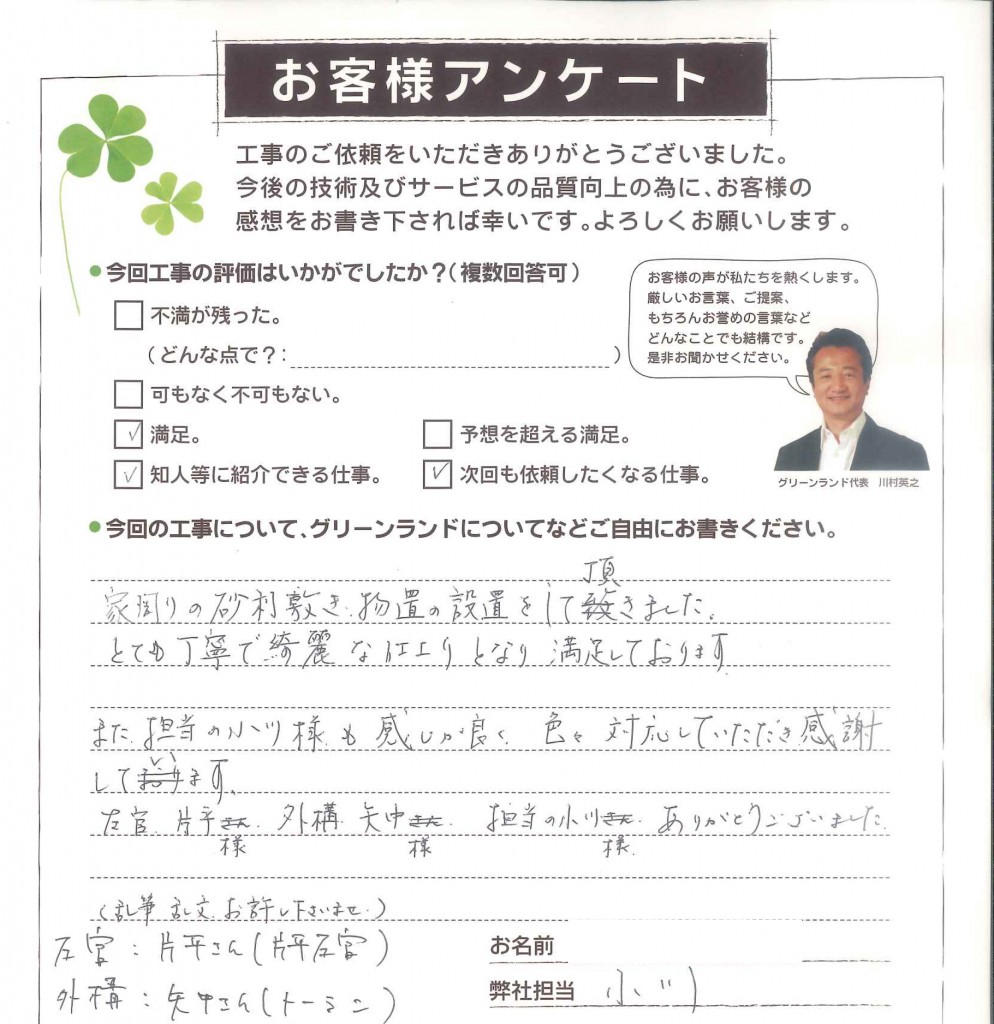 お客様アンケート
工事のご依頼をいただきありがとうございました。
今後の技術及びサービスの品質向上の為に、お客様の
感想をお書き下されば幸いです。よろしくお願いします。
●今回工事の評価はいかがでしたか?(複数回答可)
お客様の声が私たちを熱くします。
厳しいお言葉、ご提案、
もちろんお誉めの言葉など
どんなことでも結構です。
是非お聞かせください。
不満が残った。
(どんな点で?: )
可もなく不可もない。
✓ 満足。 予想を超える満足。
✓ 知人等に紹介できる仕事。 ✓ 次回も依頼したくなる仕事。
グリーンランド代表 川村英之
●今回の工事について、グリーンランドについてなどご自由にお書きください。
頂
家周りの砂利敷き、物置の設置をして致きました。
とても丁寧で綺麗な仕上りとなり満足しております
また担当の小川様も感じが良く色々対応していただき感謝
い
しておりります。
左官 片平さん、外構 矢中さん、担当の小川さん、ありがとうございました。
様 様 様
(乱筆乱文お許し下さいませ)
左官:片平さん(片平左官)
お名前
外構:矢中さん(トーシン)
弊社担当 小川